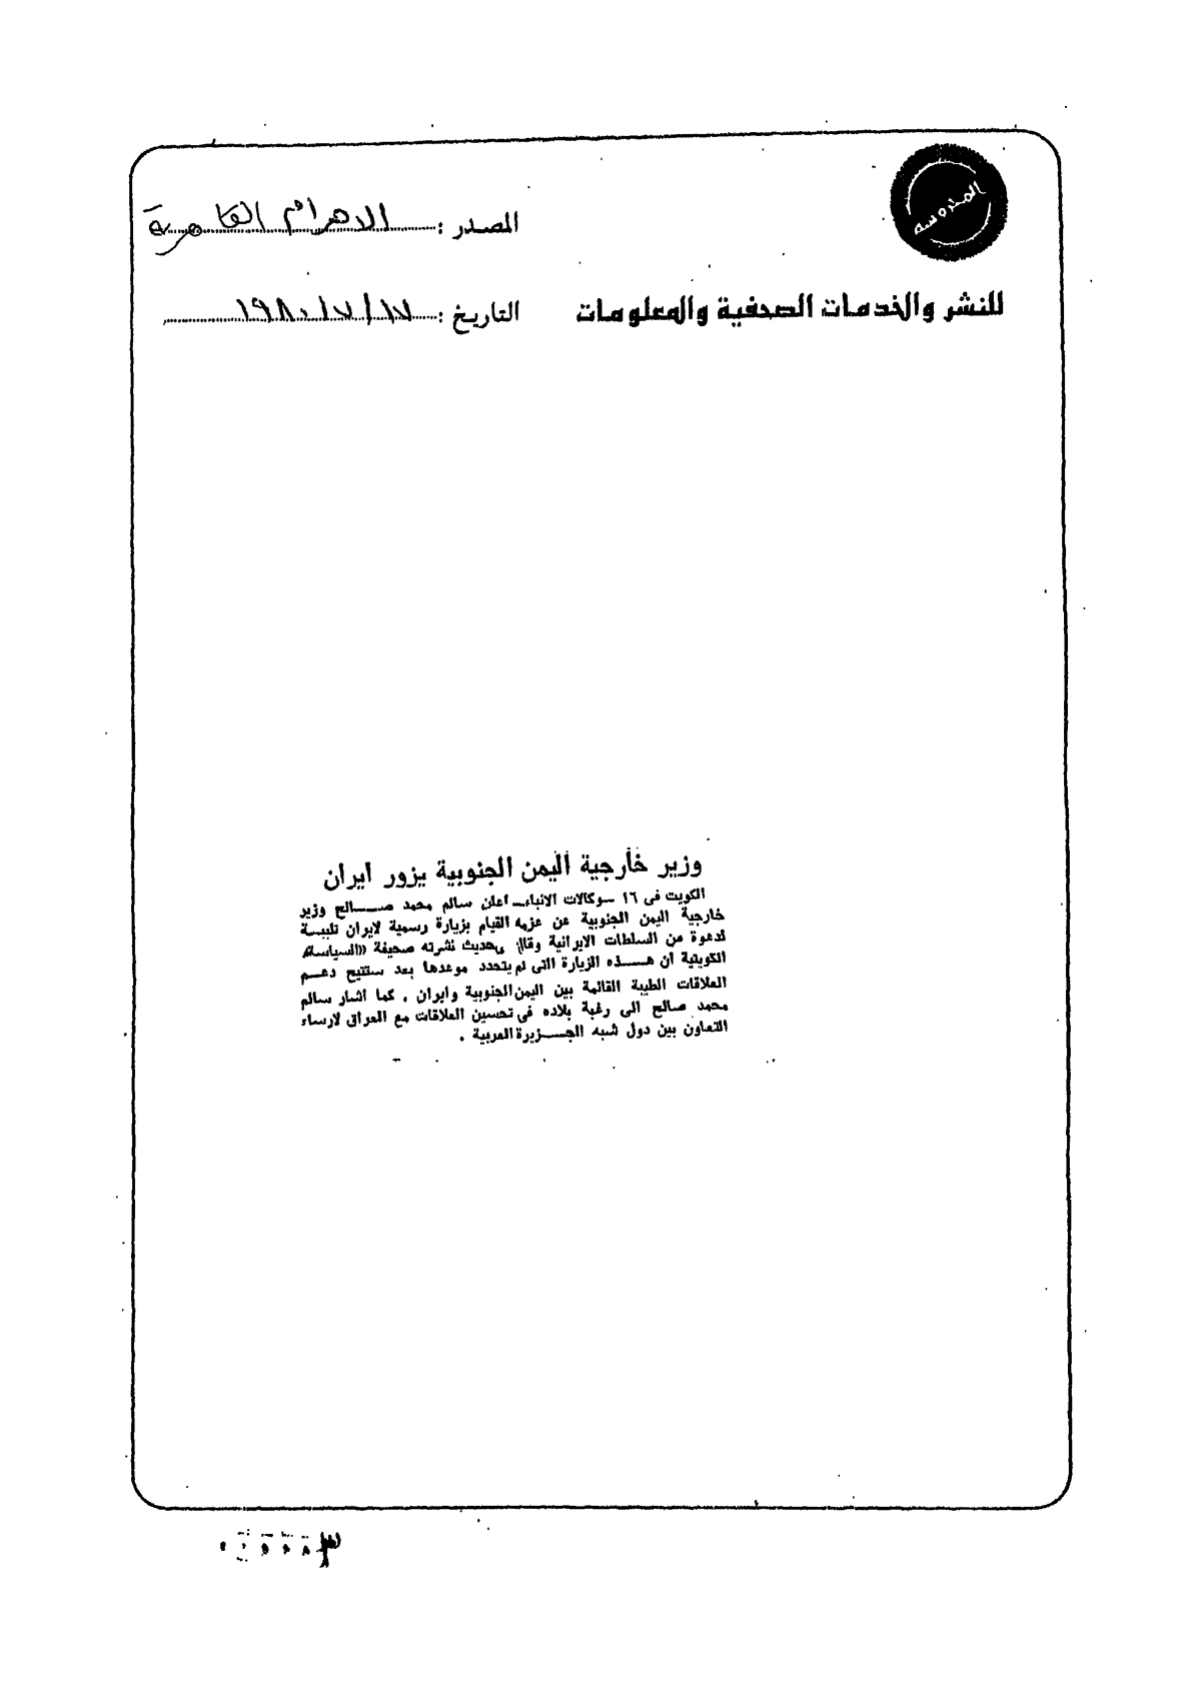 المدروسه
المصدر : الاهرام القاهرية
للنشر والخدمات الصحفية والمعلومات
التاريخ : ١٧/٧/١٩٨٠
وزير خارجية اليمن الجنوبية يزور ايران
الكويت فى ١٦ ــ وكالات الانباء ــ اعلن سالم محمد صــــالح وزير
خارجية اليمن الجنوبية عن عزمه القيام بزيارة رسمية لايران تلبيــة
لدعوة من السلطات الايرانية وقال فى حديث نشرته صحيفة «السياسة»
الكويتية ان هــــذه الزيارة التى لم يتحدد موعدها بعد ستتيح دعــم
العلاقات الطيبة القائمة بين اليمن الجنوبية وايران . كما اشار سالم
محمد صالح الى رغبة بلاده فى تحسين العلاقات مع العراق لارساء
التعاون بين دول شبه الجــــزيرة العربية .